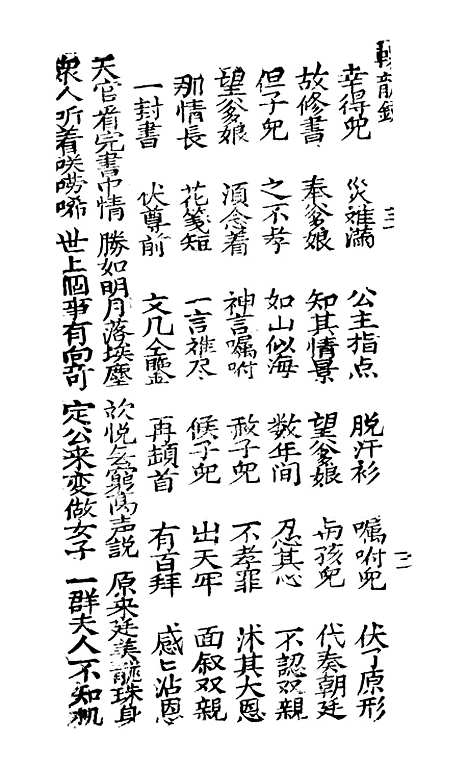 轉龍鏡
幸得兒 災難滿 公主指点 脱汗衫 嘱咐兒 伏了原形
故修書 奉爹娘 知其情景 望爹娘 与孩兒 代奏朝廷
但子兒 之不孝 如山似海 数年间 忍其心 不認双親
望爹娘 須念着 神言嘱咐 赦子兒 不孝罪 沐其大恩
那情長 花箋短 一言难尽 候子兒 出天牢 面叙双親
一封書 伏尊前 文几仝鑒 再頓首 有百拜 感匕沾恩
天官看完書中情 勝如明月落埃塵 欢悦无窮高声説 原来廷美龍珠身
众人听着咲嘮唏 世上囬事有向奇 定公来変做女子 一群夫人不知机